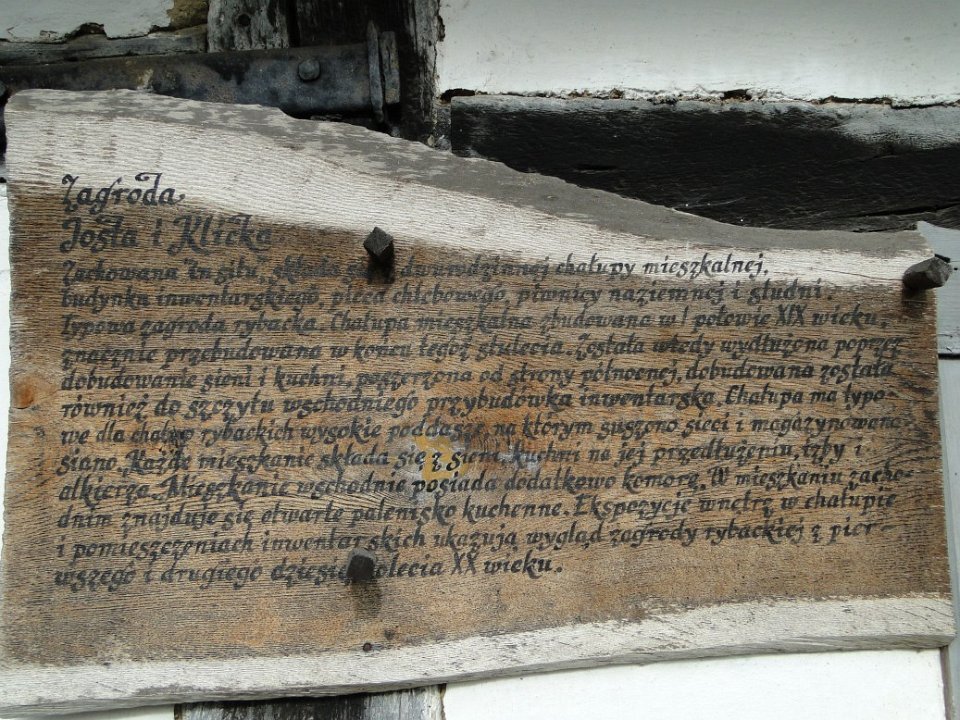 Zagroda
Josta i Klicka
Zachowana in situ, składa się z dwurodzinnej chałupy mieszkalnej,
budynku inwentarskiego, pieca chlebowego, piwnicy naziemnej i studni.
Typowa zagroda rybacka. Chałupa mieszkalna zbudowana w I połowie XIX wieku,
znacznie przebudowana w końcu tegoż stulecia. Została wtedy wydłużona poprzez
dobudowanie sieni i kuchni, poszerzona od strony północnej, dobudowana została
również do szczytu wschodniego przybudówka inwentarska. Chałupa ma typo-
we dla chałup rybackich wysokie poddasze, na którym suszono sieci i magazynowano
siano. Każde mieszkanie składa się z sieni, kuchni na jej przedłużeniu, izby i
alkierza. Mieszkanie wschodnie posiada dodatkowo komorę. W mieszkaniu zacho-
dnim znajduje się otwarte palenisko kuchenne. Ekspozycje wnętrz w chałupie
i pomieszczeniach inwentarskich ukazują wygląd zagrody rybackiej z pier-
wszego i drugiego dziesięciolecia XX wieku.